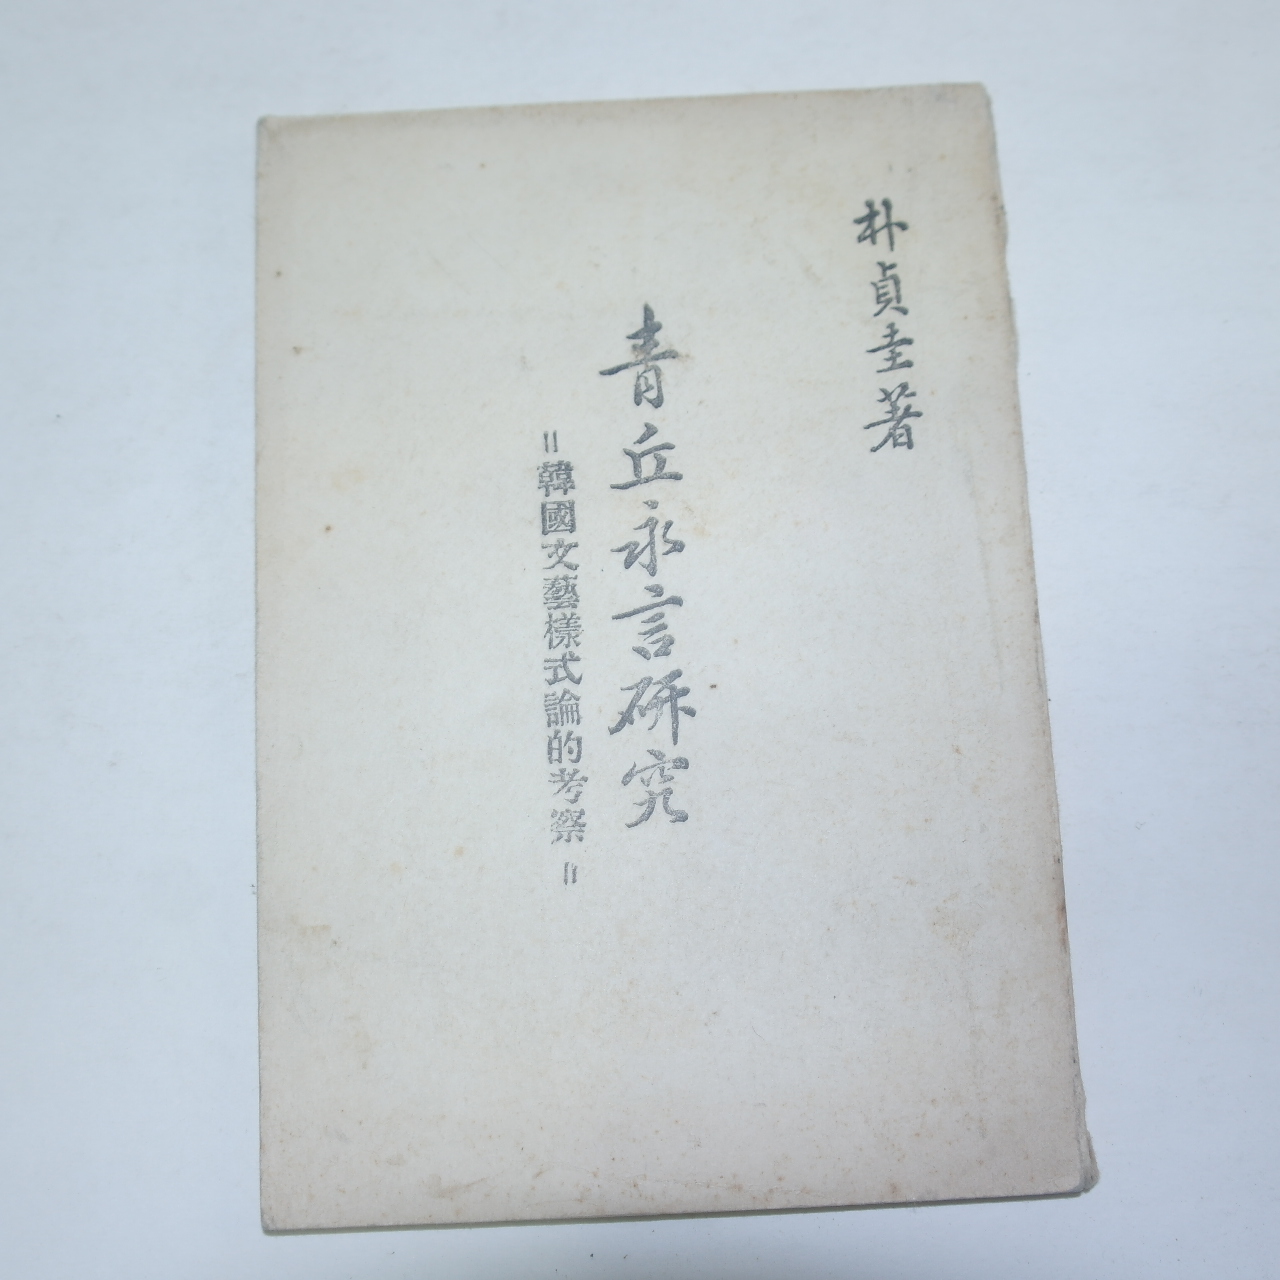 朴貞圭著
青丘永言硏究
=韓國文藝樣式論的考察=